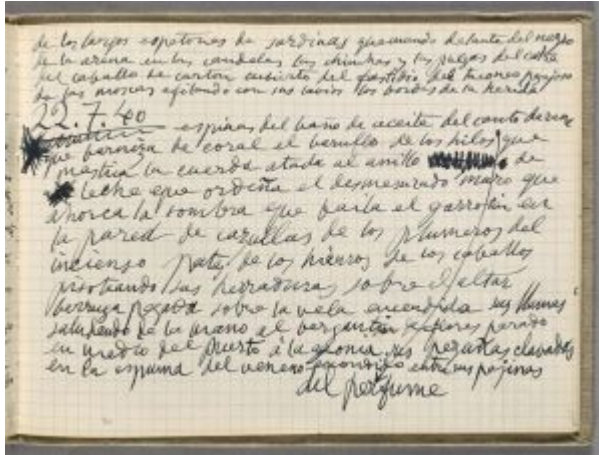 de los largos espetones de sardinas quemando delante del negro
de la arena en las candelas las chinches y las pulgas del catre
del caballo de carton cubierto del fastidio del
de las moscas afilando con sus labios los bordes de la herida
22.7.40
espinas del baño de aceite del canto
que barniza de coral el barullo de los hilos que
mastica la cuerda atada al anillo de
leche que ordeña el desmesurado muro que
ahorca la sombra que baila el garrotin en
la pared de carillas de los plumeros del
incienso patas de los hierros de los caballos
pisoteando sus herraduras sobre el altar
berruga pegada sobre la vela encendida sus llamas
saludando de la mano el bergantin parado
en medio del puerto a la agonia sus pezuñas clavadas
en la espuma del veneno escondido entre sus paginas
del perfume